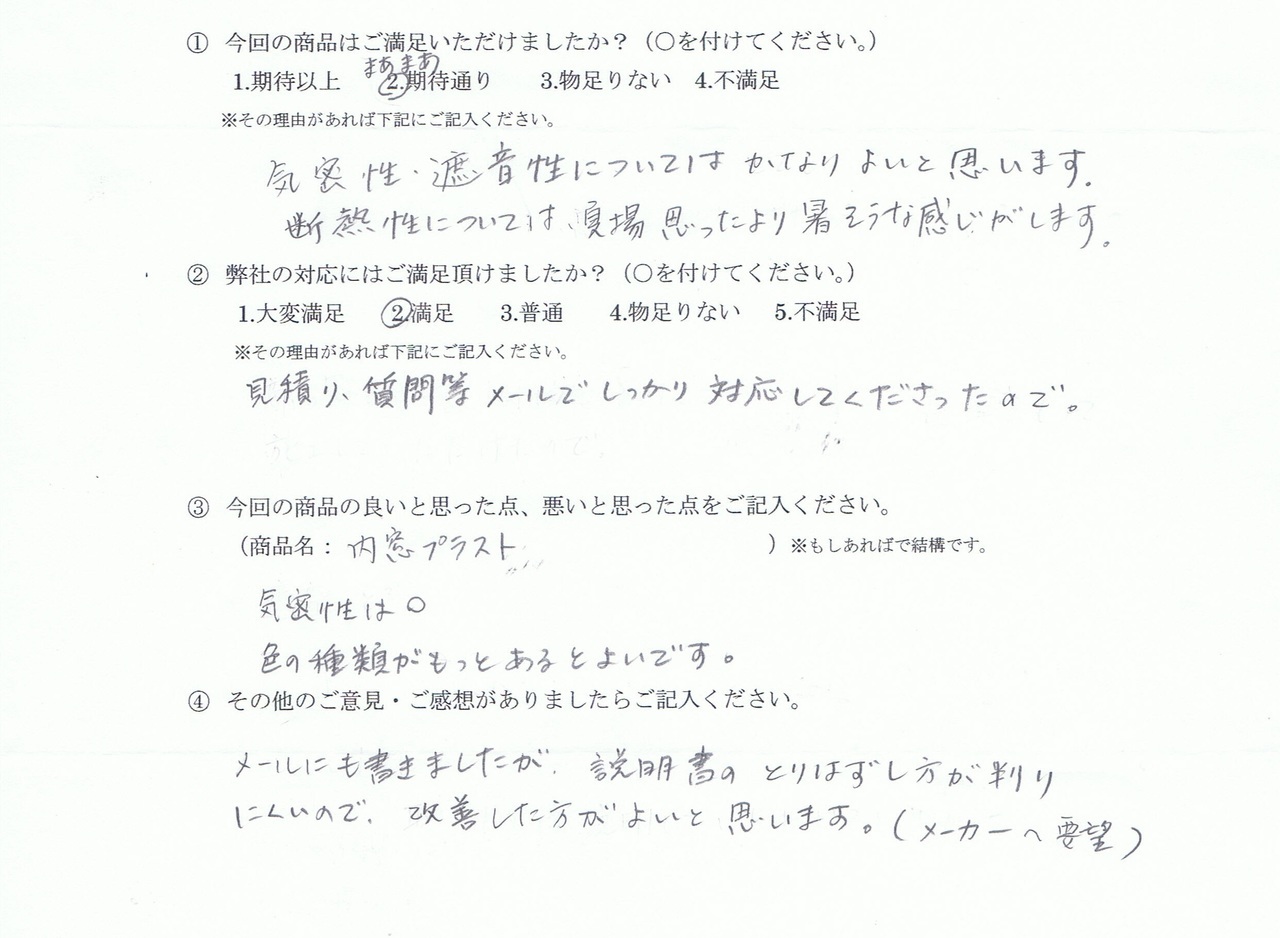 ① 今回の商品はご満足いただけましたか？（○を付けてください。）
まあまあ
1.期待以上 2.期待通り 3.物足りない 4.不満足
※その理由があれば下記にご記入ください。
気密性・遮音性については かなり よいと思います。
断熱性については、夏場 思ったより 暑そうな感じがします。
② 弊社の対応にはご満足頂けましたか？（○を付けてください。）
1.大変満足 2.満足 3.普通 4.物足りない 5.不満足
※その理由があれば下記にご記入ください。
見積り、質問等 メールで しっかり 対応してくださったので。
③ 今回の商品の良いと思った点、悪いと思った点をご記入ください。
（商品名： 内窓プラスト ）※もしあればで結構です。
気密性は○
色の種類がもっとあるとよいです。
④ その他のご意見・ご感想がありましたらご記入ください。
メールにも書きましたが、説明書の とりはずし方が判り
にくいので、改善した方がよいと 思います。（メーカーへ要望）